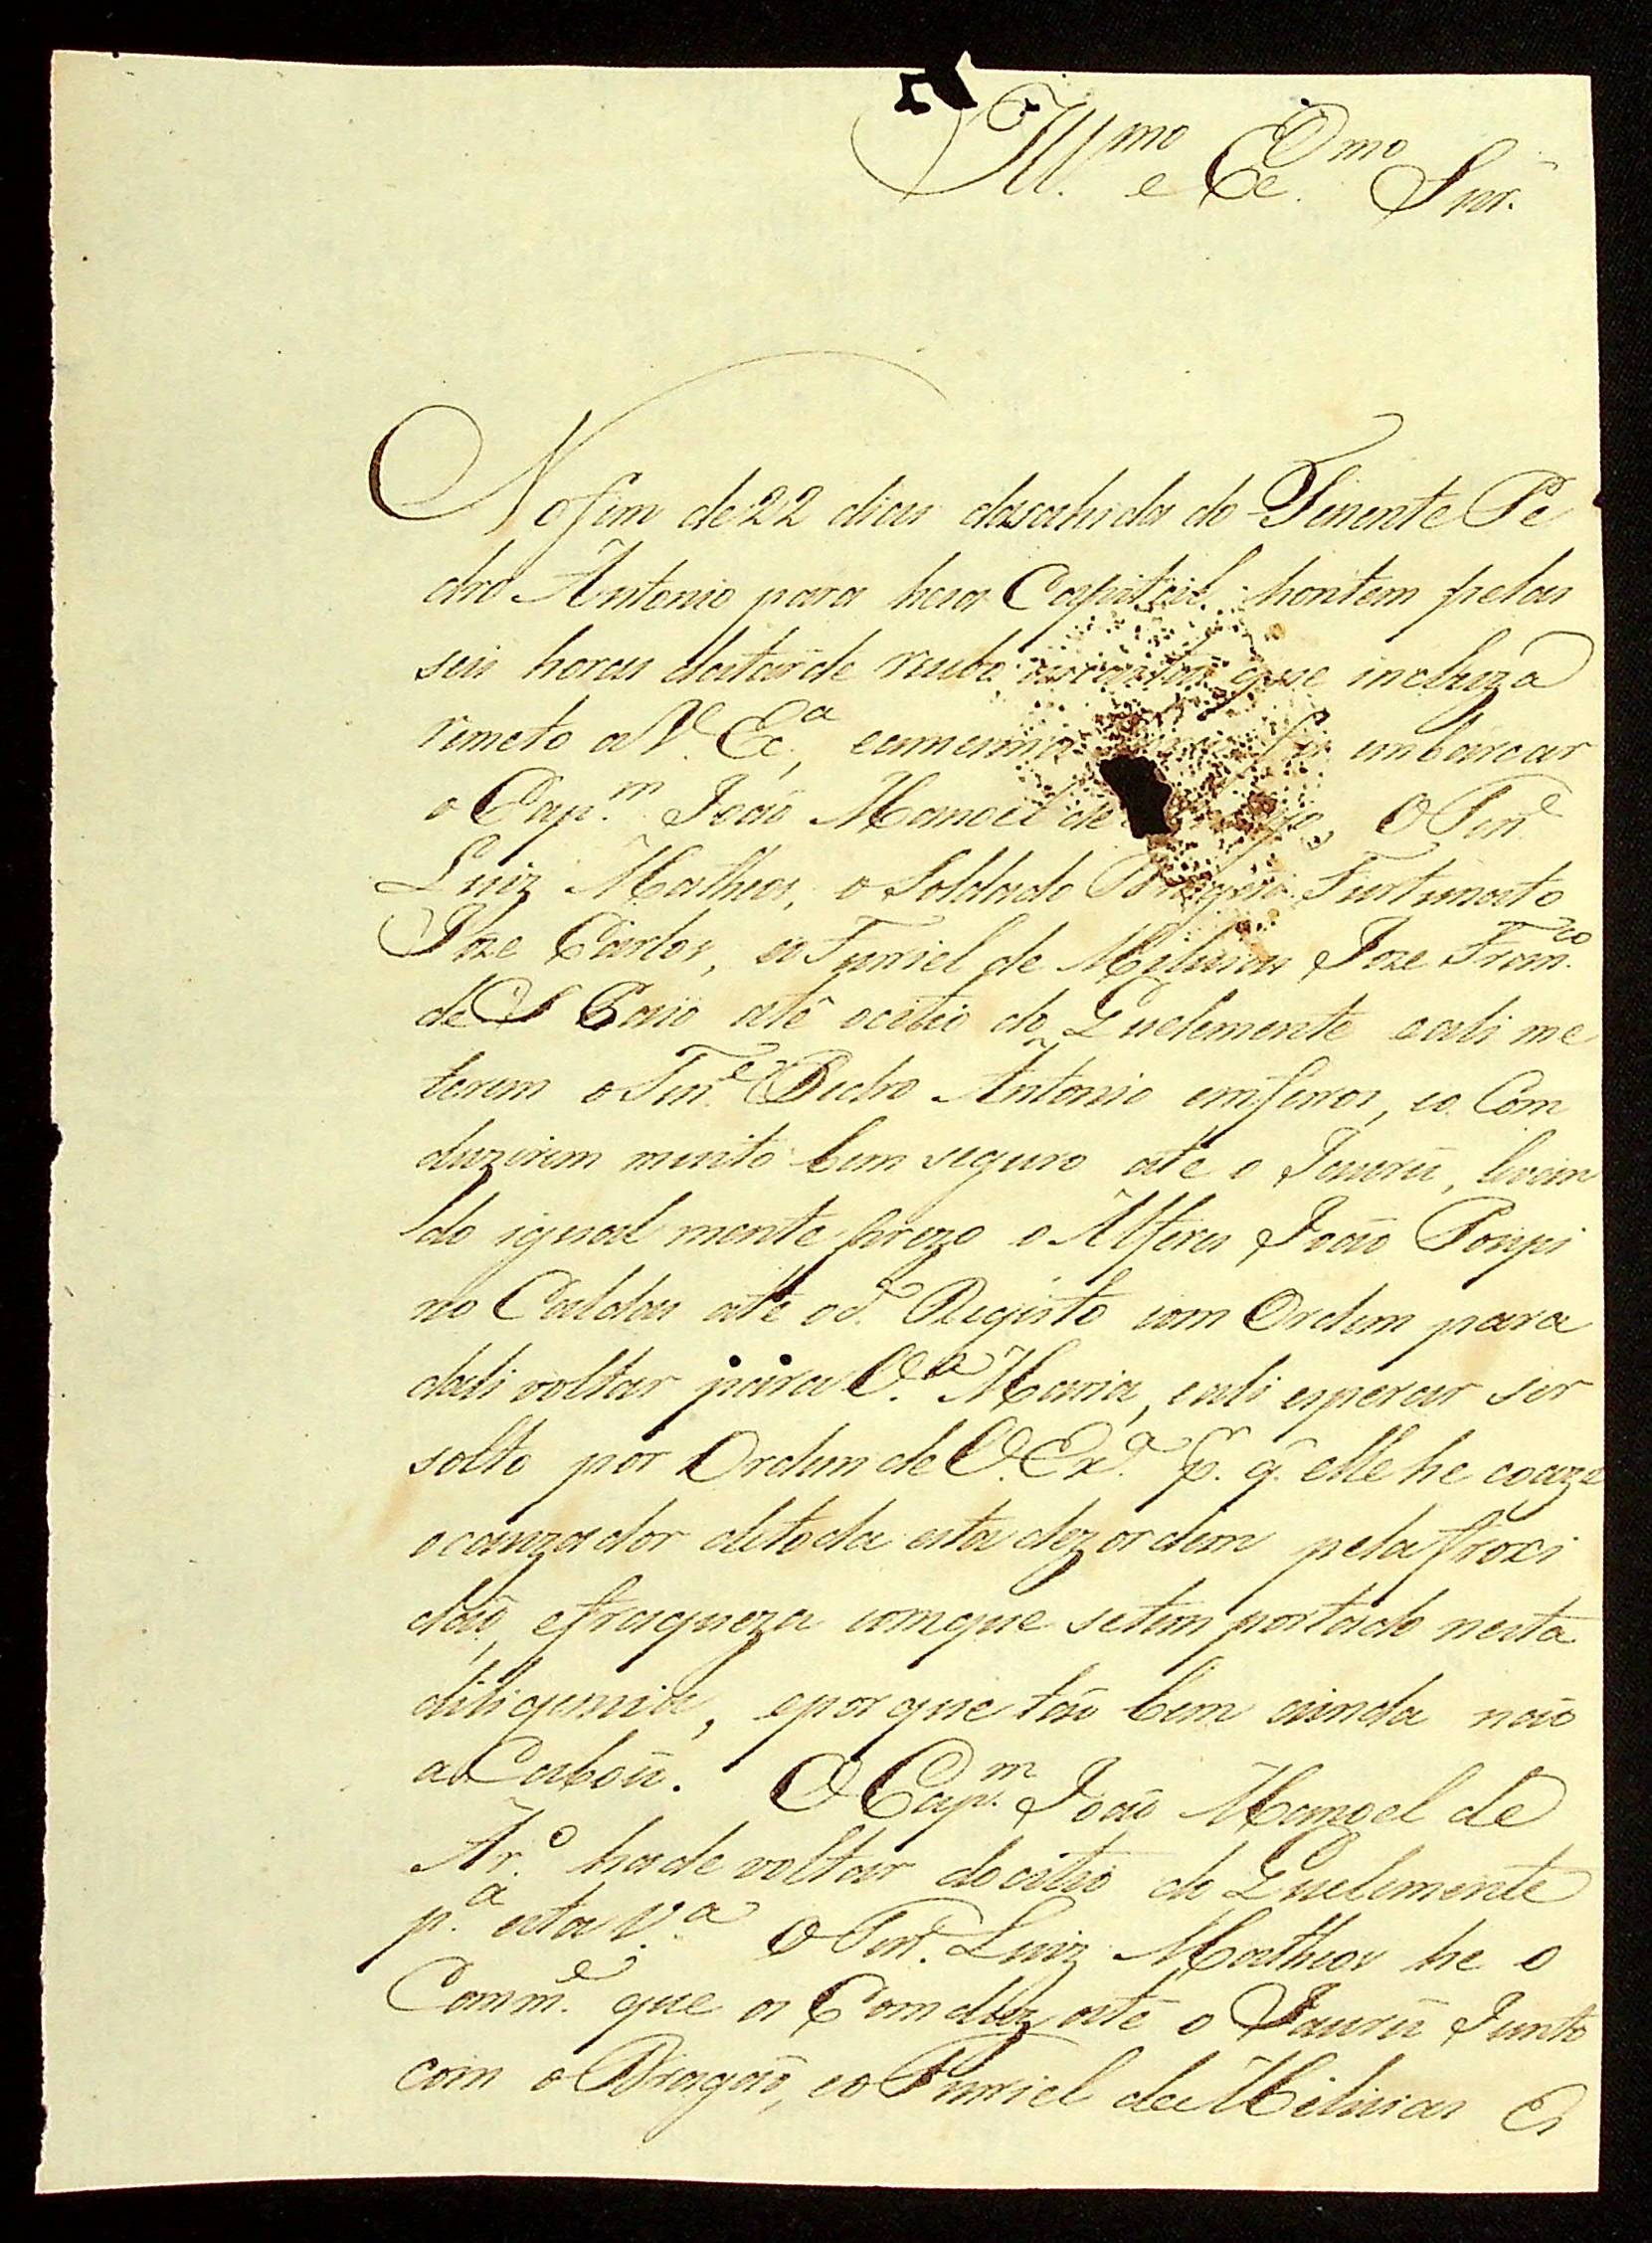 Ill.mo e Ex.mo Snr.
No fim de 22 dias dasahida do Tenente Pe
dro Antonio para hesa Capital hontem pelas
seis horas datarde recebo que incluza
remeto a V. Ex.a, eamesma embarcar
o Cap.m João Manoel de O Ten.e
Luiz Matheos, o Soldado Dragão Furtunato
Joze Carlos, eo Furriel de Milicias Joze Fran.co
de S Paio atê ocitio do Guelemente eali me
terem o Ten.e Pedro Antonio emferros, eo Com
duzirem muito bem seguro ate o Jaurú, levan
do igual mente prezo o Alferes João Poupi
no Caldas atê o d.o Registo com Ordem para
dali voltar para V.a Maria, eali esperar ser
solto por Ordem de V. Ex.a p.r q. elle he coaze
ocauzador detoda esta dezordem pela froxi
dão, efraqueza comque setem portado nesta
diligencia, eporque tão bem ainda não
aCabou. O Cap.m João Manoel de
Ar.o hade voltar docitio do Guelemente
p.a esta V.a O Ten.e Luiz Matheos he o
Comm.e que os Comduz atê o Jaurú Junto
com o Dragão, eo Furriel de Milicias Os